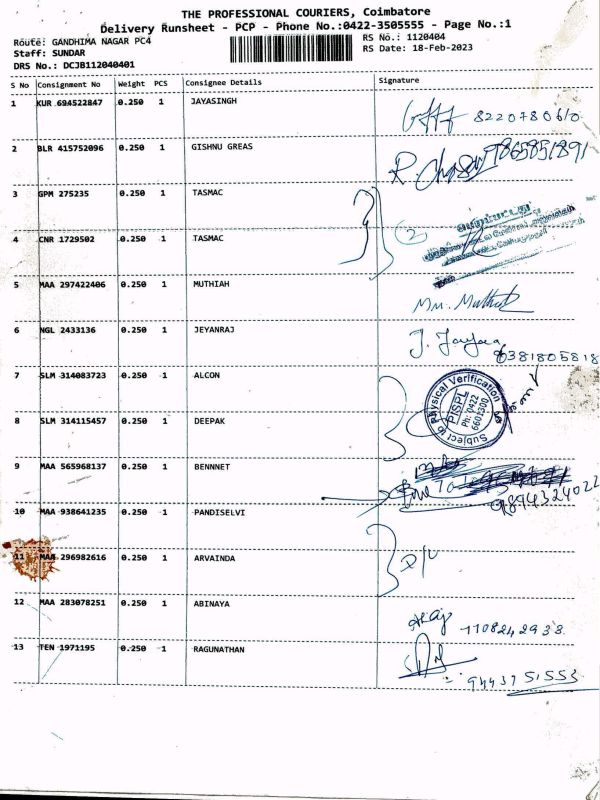 THE PROFESSIONAL COURIERS, Coimbatore
Delivery Runsheet - PCP - Phone No.:0422-3505555 - Page No.:1
Route: GANDHIMA NAGAR PC4
RS No.: 1120404
Staff: SUNDAR
RS Date: 18-Feb-2023
DRS No.: DCJB112040401
S No Consignment No Weight PCS Consignee Details Signature
1 KUR 694522847 0.250 1 JAYASINGH 8220780610
2 BLR 415752096 0.250 1 GISHNU GREAS 9865851891
3 GPM 275235 0.250 1 TASMAC
4 CNR 1729502 0.250 1 TASMAC
5 MAA 297422406 0.250 1 MUTHIAH
6 NGL 2433136 0.250 1 JEYANRAJ 6381805818
7 SLM 314083723 0.250 1 ALCON
Subject to Physical Verification
PISPL
Ph: 0422
6601300
8 SLM 314115457 0.250 1 DEEPAK
9 MAA 565968137 0.250 1 BENNNET
10 MAA 938641235 0.250 1 PANDISELVI 9894324022
11 MAA 296982616 0.250 1 ARVAINDA
12 MAA 283078251 0.250 1 ABINAYA
13 TEN 1971195 0.250 1 RAGUNATHAN